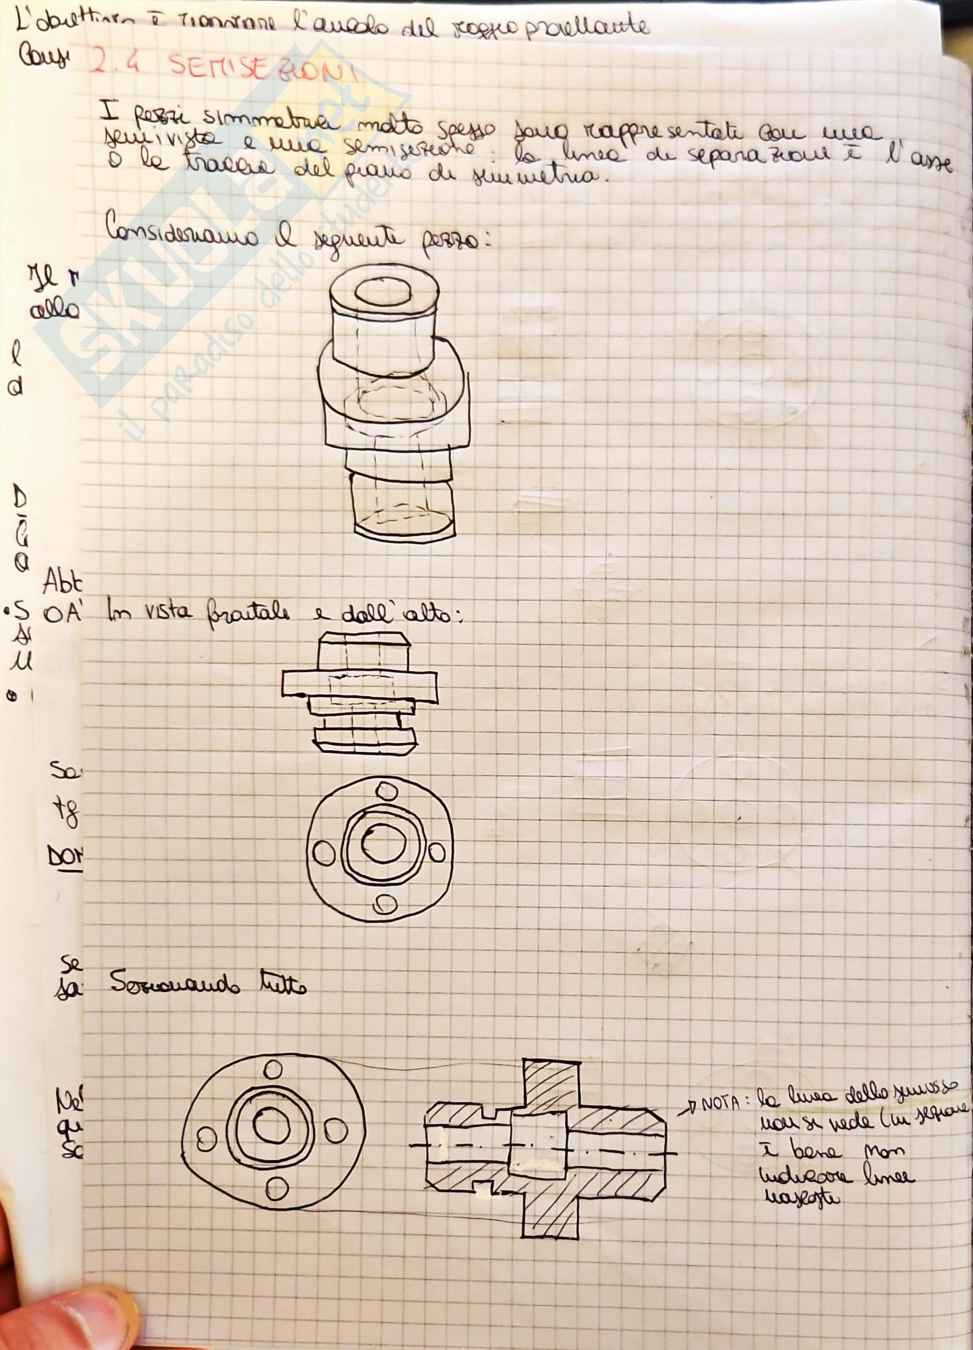 L'obiettivo è trovare l'angolo del raggio
Cons
2.4 SEMISEZIONI
I pezzi simmetrici molto spesso sono rappresentati con una
semivista e una semisezione: la linea di separazione è l'asse
o la traccia del piano di simmetria.
Consideriamo il seguente pezzo:
Il r
allo
l
d
D
Abt
•S OA' In vista frontale e dall'alto:
Sa
tg
DOM
Se
sa Sezionando tutto
NOTA: la linea dello smusso
non si vede (in sezione
è bene non
indicare linee
nascoste
Nel
qu
So
SKUOLA.net
il paradiso dello studente